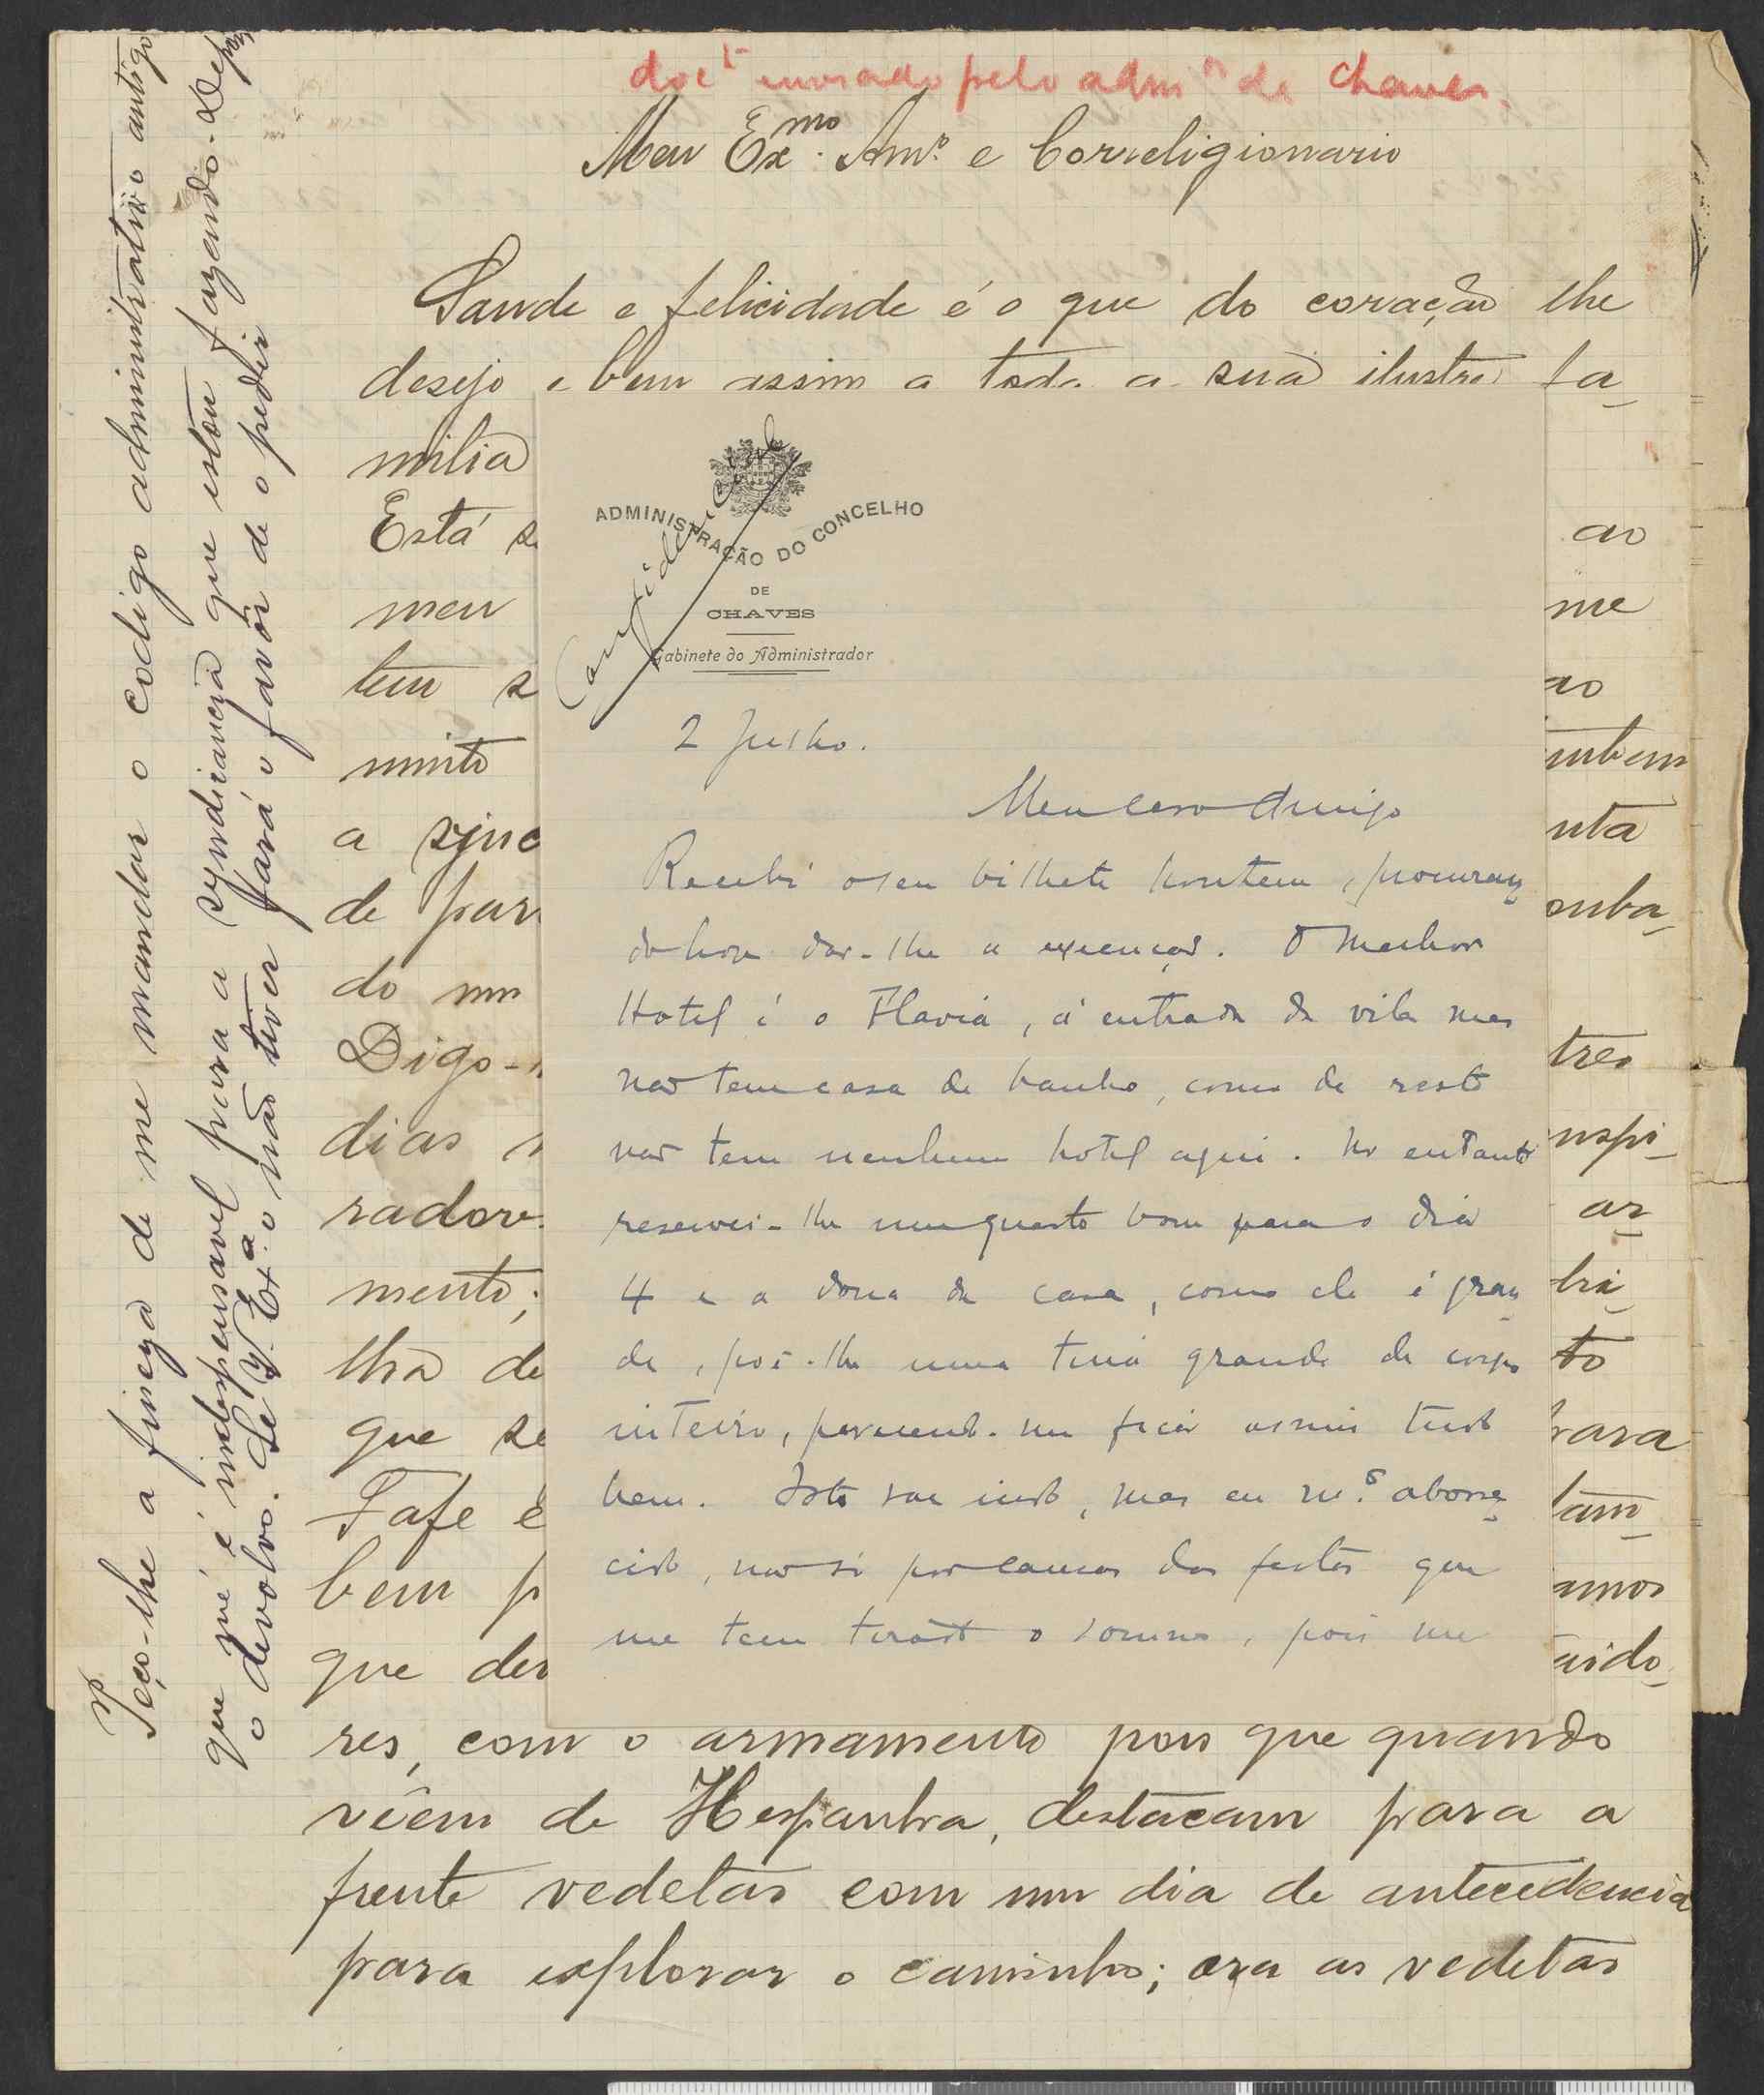 doc.t enviado pelo adm.or de Chaves.
Meu Ex.mo Am.o e Correligionario
Saude e felicidade é o que do coração lhe
desejo e bem assim a toda a sua ilustre fa-
milia
Está
meu
tem
muito
a sync
de par
do um
Digo-
dias
radore
mento;
lha de
que se
Fafe é
bem p
que der
ao
me
ao
mbem
nta
onba-
tres
nspi-
ar-
bri-
to
para
tam-
amos
uido-
res, com o armamento pois que quando
vêem de Hespanha, destacam para a
frente vedetas com um dia de antecedencia
para explorar o caminho; ora as vedetas
Peço-lhe a fineza de me mandar o codigo administrativo antigo
que me é indespensavel para a syndicancia que estou fazendo. Depois
o devolvo. Se V. Ex.a o não tiver fará o favôr de o pedir
Confidencial
ADMINISTRAÇÃO DO CONCELHO
DE
CHAVES
Gabinete do Administrador
2 Julho.
Meu caro Amigo
Recebi o seu bilhete hontem, procuran-
do hoje dar-lhe a execução. O melhor
Hotel é o Flavia, á entrada da vila mas
não tem casa de banho, como de resto
não tem nenhum hotel aqui. No entanto
reservei-lhe um quarto bom para o dia
4 e a dona da casa, como ele é gran-
de, poz-lhe uma tina grande de corpo
inteiro, parecendo-me ficar assim tudo
bem. Isto vae indo, mas eu m.o aborre-
cido, não só por causa das festas que
me tem tirado o somno, pois me